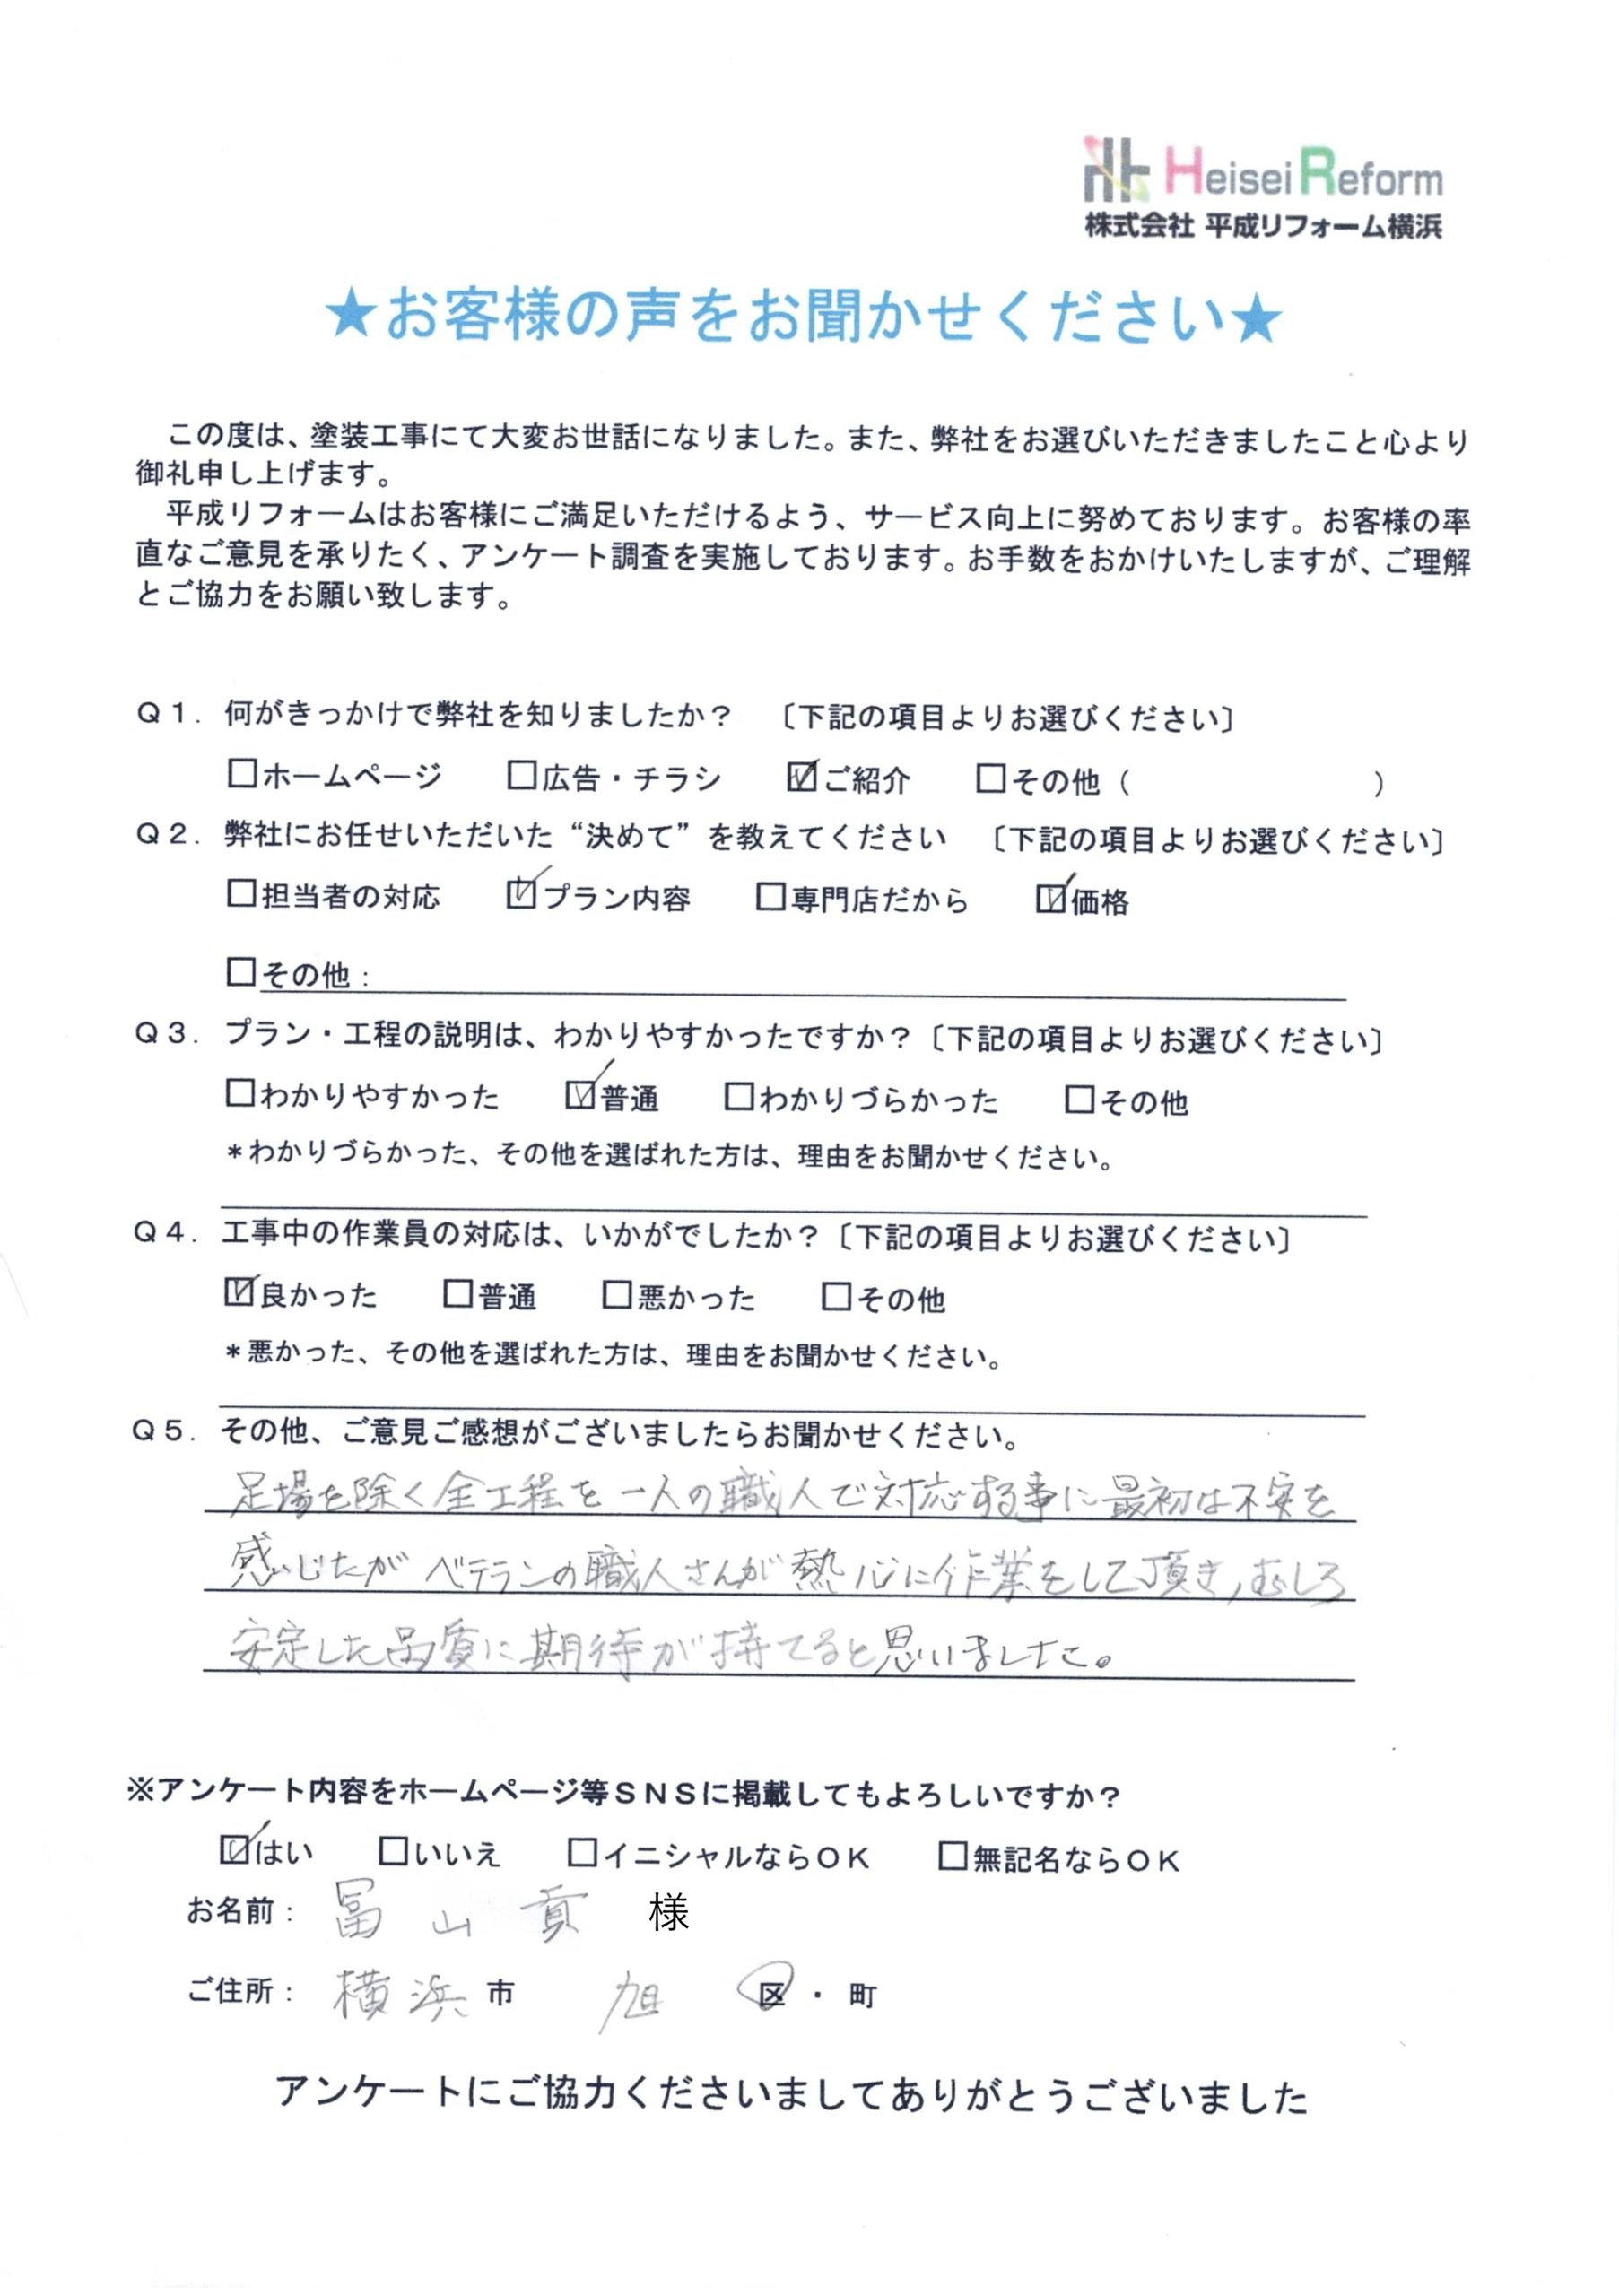 Heisei Reform
株式会社 平成リフォーム横浜
★お客様の声をお聞かせください★
この度は、塗装工事にて大変お世話になりました。また、弊社をお選びいただきましたこと心より
御礼申し上げます。
平成リフォームはお客様にご満足いただけるよう、サービス向上に努めております。お客様の率
直なご意見を承りたく、アンケート調査を実施しております。お手数をおかけいたしますが、ご理解
とご協力をお願い致します。
Q1. 何がきっかけで弊社を知りましたか? 〔下記の項目よりお選びください〕
□ホームページ □広告・チラシ ☑ご紹介 □その他 ( )
Q2. 弊社にお任せいただいた“決めて”を教えてください 〔下記の項目よりお選びください〕
□担当者の対応 ☑プラン内容 □専門店だから ☑価格
□その他:
Q3. プラン・工程の説明は、わかりやすかったですか?〔下記の項目よりお選びください〕
□わかりやすかった ☑普通 □わかりづらかった □その他
*わかりづらかった、その他を選ばれた方は、理由をお聞かせください。
Q4. 工事中の作業員の対応は、いかがでしたか?〔下記の項目よりお選びください〕
☑良かった □普通 □悪かった □その他
*悪かった、その他を選ばれた方は、理由をお聞かせください。
Q5. その他、ご意見ご感想がございましたらお聞かせください。
足場を除く全工程を一人の職人で対応する事に最初は不安を
感じたがベテランの職人さんが熱心に作業をして頂き,むしろ
安定した品質に期待が持てると思いました。
※アンケート内容をホームページ等SNSに掲載してもよろしいですか?
☑はい □いいえ □イニシャルならOK □無記名ならOK
お名前: 冨山貢 様
ご住所: 横浜市 旭 区・町
アンケートにご協力くださいましてありがとうございました